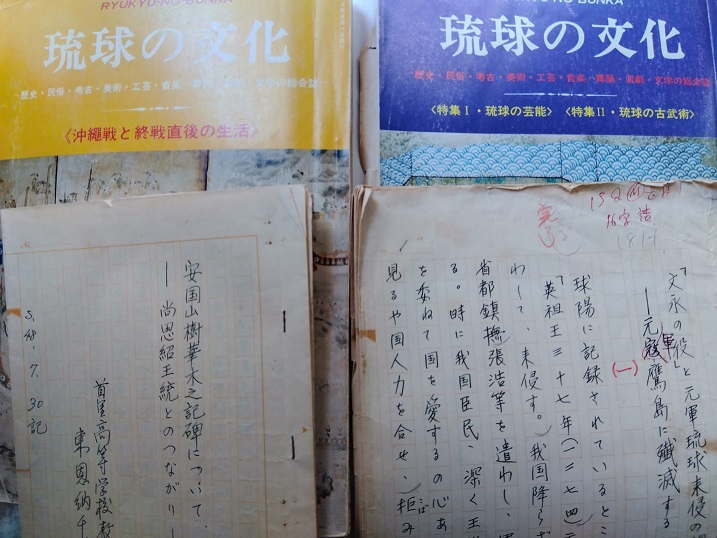 RYUKYU-NO-BUNKA
琉球の文化
歴史・民俗・考古・美術・工芸・音楽・舞踊・演劇・文学の総合誌
《沖縄戦と終戦直後の生活》
RYUKYU-NO-BUNKA
琉球の文化
歴史・民俗・考古・美術・工芸・音楽・舞踊・演劇・文学の総合誌
〈特集Ⅰ・琉球の芸能〉 〈特集Ⅱ・琉球の古武術〉
安国山樹華木之記碑について、
―尚思紹王統とのつながり―
首里高等学校教
東恩納千
S.48.7.30記
「文永の役」と元軍琉球来侵の
―元軍鷹島に殱滅する
(一)
球陽に記録されているとこ
「英祖王三十七年(一二七四)
わして、来侵す。我国降らず
省都鎮撫張浩等を遣わし、軍
る。時に我国臣民、深く王
を委ねて国を愛するの心あ
見るや国人力を合せ、拒み